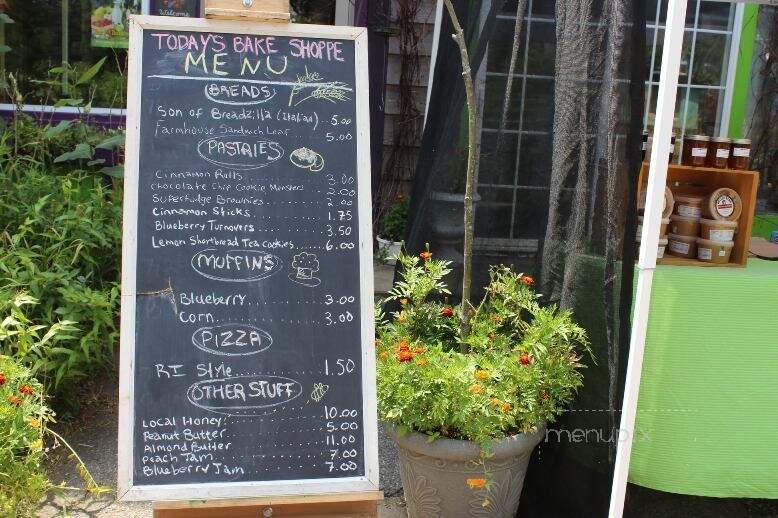 TODAYS BAKE SHOPPE
MENU
BREADS
Son of Breadzilla (Italian) .. 5.00
Farmhouse Sandwich Loaf ...... 5.00
PASTRIES
Cinnamon Rolls ............ 3.00
Chocolate Chip Cookie Monsters .. 2.00
Superfudge Brownies ........ 2.00
Cinnamon Sticks ........... 1.75
Blueberry Turnovers ........ 3.50
Lemon Shortbread Tea Cookies ..... 6.00
MUFFINS
Blueberry ............ 3.00
Corn ................ 3.00
PIZZA
RI Style ............ 1.50
OTHER STUFF
Local Honey ............ 10.00
Peanut Butter ........... 5.00
Almond Butter ........... 11.00
Peach Jam .............. 7.00
Blueberry Jam ........... 7.00
menupix